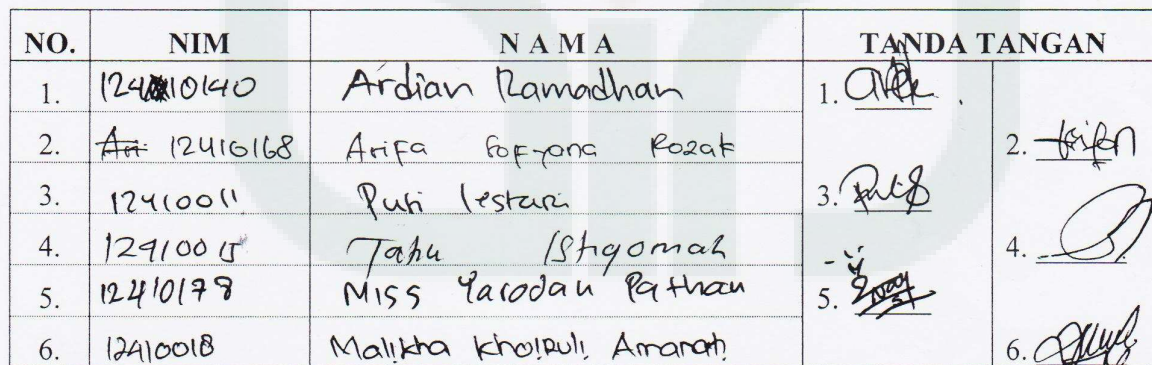 NO. NIM N A M A TANDA TANGAN
1. 12410140 Ardian Ramadhan 1.
2. 12410168 Arifa Sofyana Rozak 2.
3. 12410011 Puri lestari 3.
4. 12410015 Istiqomah 4.
5. 12410178 Miss Yarodau Pathan 5.
6. 12410018 Malikha Khoiruli Amanati 6.